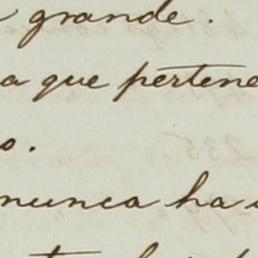 grande.
a que pertene
o.
nunca ha